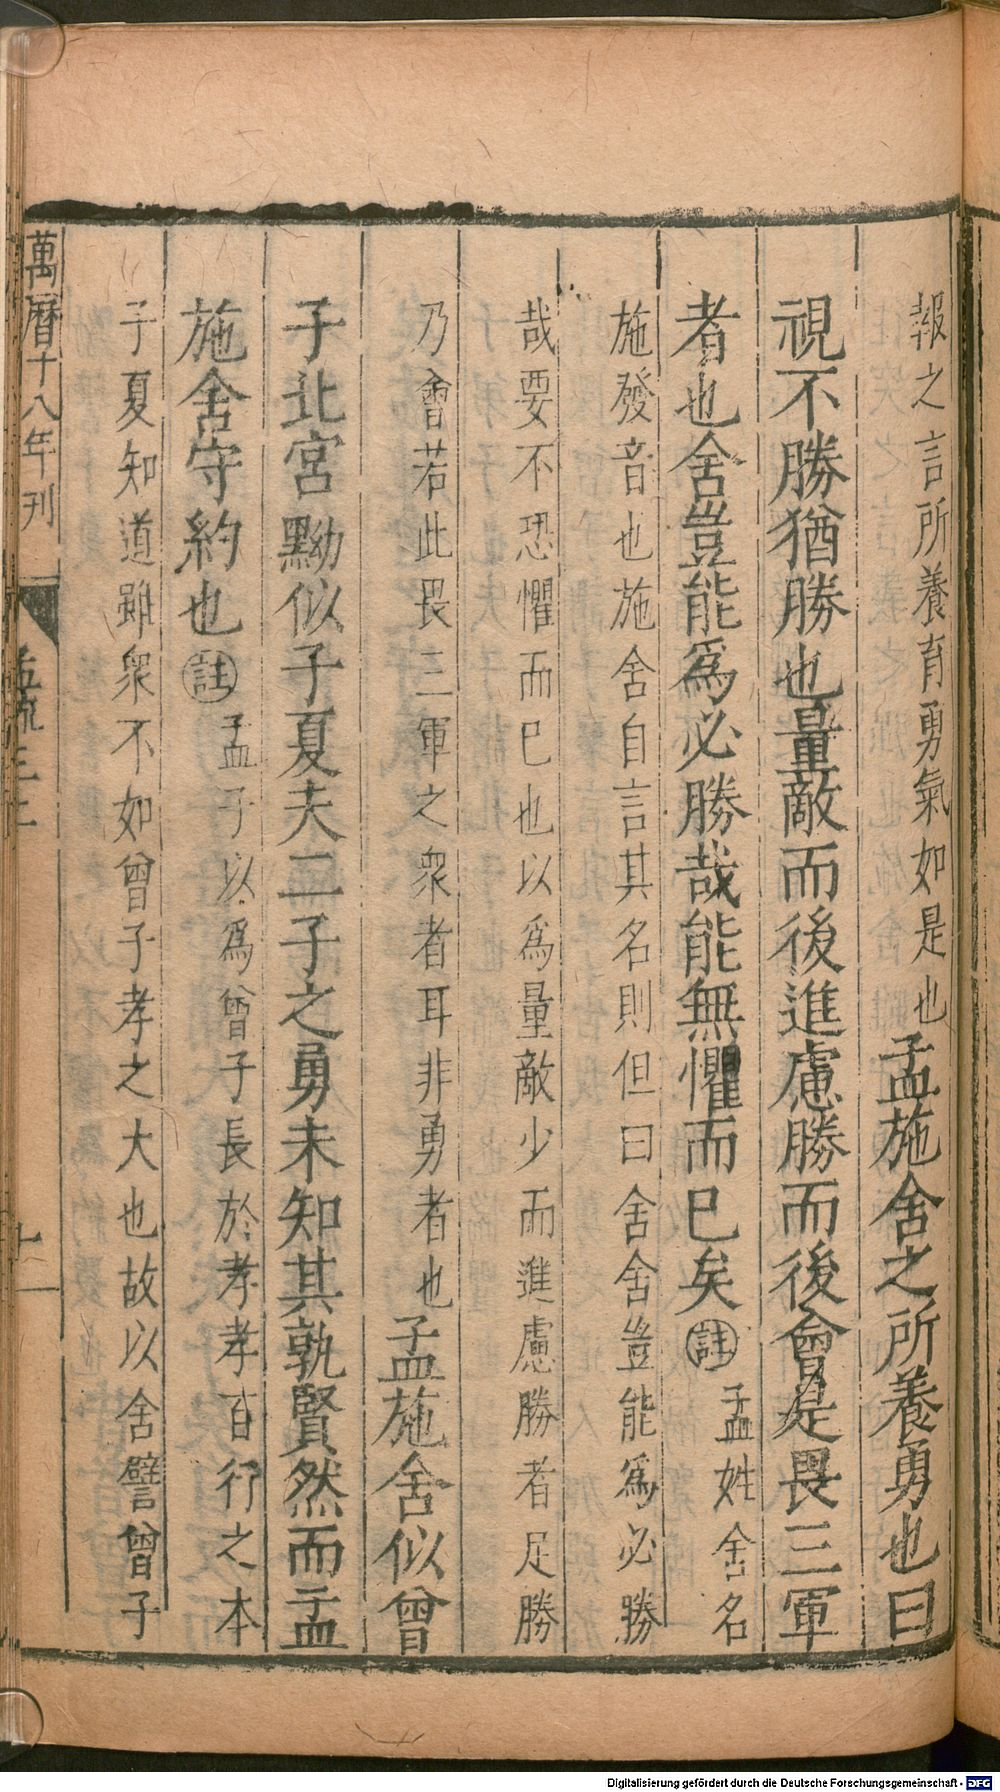 報之言所養育勇氣如是也孟施舍之所養勇也曰
視不勝猶勝也量敵而後進慮勝而後會是畏三軍
者也舍豈能爲必勝哉能無懼而已矣註孟姓舍名
施發音也施舍自言其名則但曰舍舍豈能爲必勝
哉要不恐懼而已也以爲量敵少而進慮勝者足勝
乃會若此畏三軍之衆者耳非勇者也孟施舍似曾
子北宮黝似子夏夫二子之勇未知其孰賢然而孟
施舍守約也註孟子以爲曾子長於孝孝百行之本
子夏知道雖衆不如曾子孝之大也故以舍譬曾子
萬曆十八年刊 孟疏三上 七
Digitalisierung gefördert durch die Deutsche Forschungsgemeinschaft - DFG